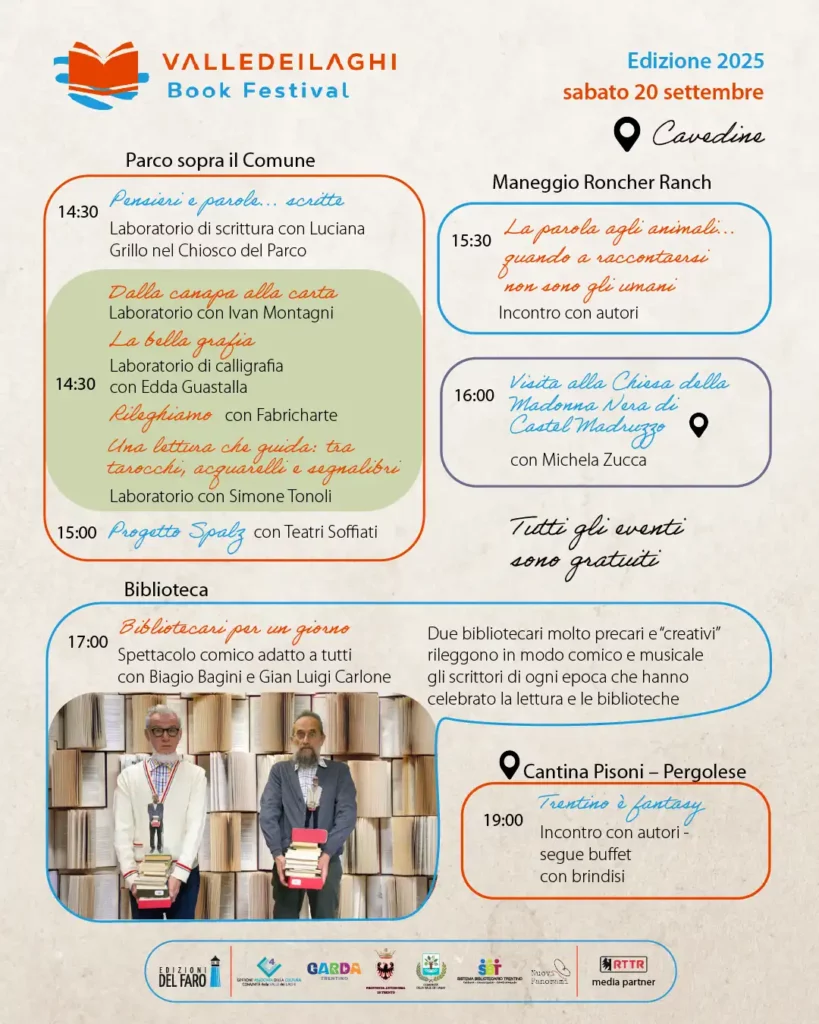 VALLEDEILAGHI
Book Festival
Edizione 2025
sabato 20 settembre
Cavedine
Parco sopra il Comune
14:30
Pensieri e parole... scritte
Laboratorio di scrittura con Luciana
Grillo nel Chiosco del Parco
14:30
Dalla canapa alla carta
Laboratorio con Ivan Montagni
La bella grafia
Laboratorio di calligrafia
con Edda Guastalla
Rileghiamo con Fabricharte
Una lettura che guida: tra
tarocchi, acquarelli e segnalibri
Laboratorio con Simone Tonoli
15:00 Progetto Spalz con Teatri Soffiati
Maneggio Roncher Ranch
15:30
La parola agli animali...
quando a raccontaersi
non sono gli umani
Incontro con autori
16:00
Visita alla Chiesa della
Madonna Nera di
Castel Madruzzo
con Michela Zucca
Tutti gli eventi
sono gratuiti
Biblioteca
17:00
Bibliotecari per un giorno
Spettacolo comico adatto a tutti
con Biagio Bagini e Gian Luigi Carlone
Due bibliotecari molto precari e “creativi”
rileggono in modo comico e musicale
gli scrittori di ogni epoca che hanno
celebrato la lettura e le biblioteche
Cantina Pisoni – Pergolese
19:00
Trentino è fantasy
Incontro con autori -
segue buffet
con brindisi
EDIZIONI
DEL FARO
GARDA
TRENTINO
PROVINCIA AUTONOMA
DI TRENTO
SISTEMA BIBLIOTECARIO TRENTINO
Nuovi
Panorami
RTTR
media partner